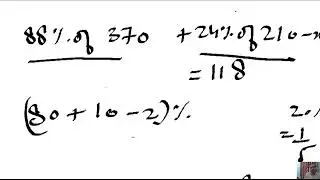 88% of 370 + 24% of 210 -
= 118
(80 + 10 - 2)%
20%
= 1/5